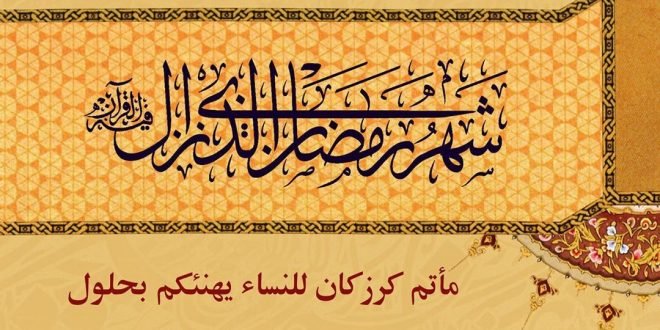 شَهْرُ رَمَضَانَ الَّذِي أُنْزِلَ فِيهِ الْقُرْآنُ
مأتم كرزكان للنساء يهنئكم بحلول